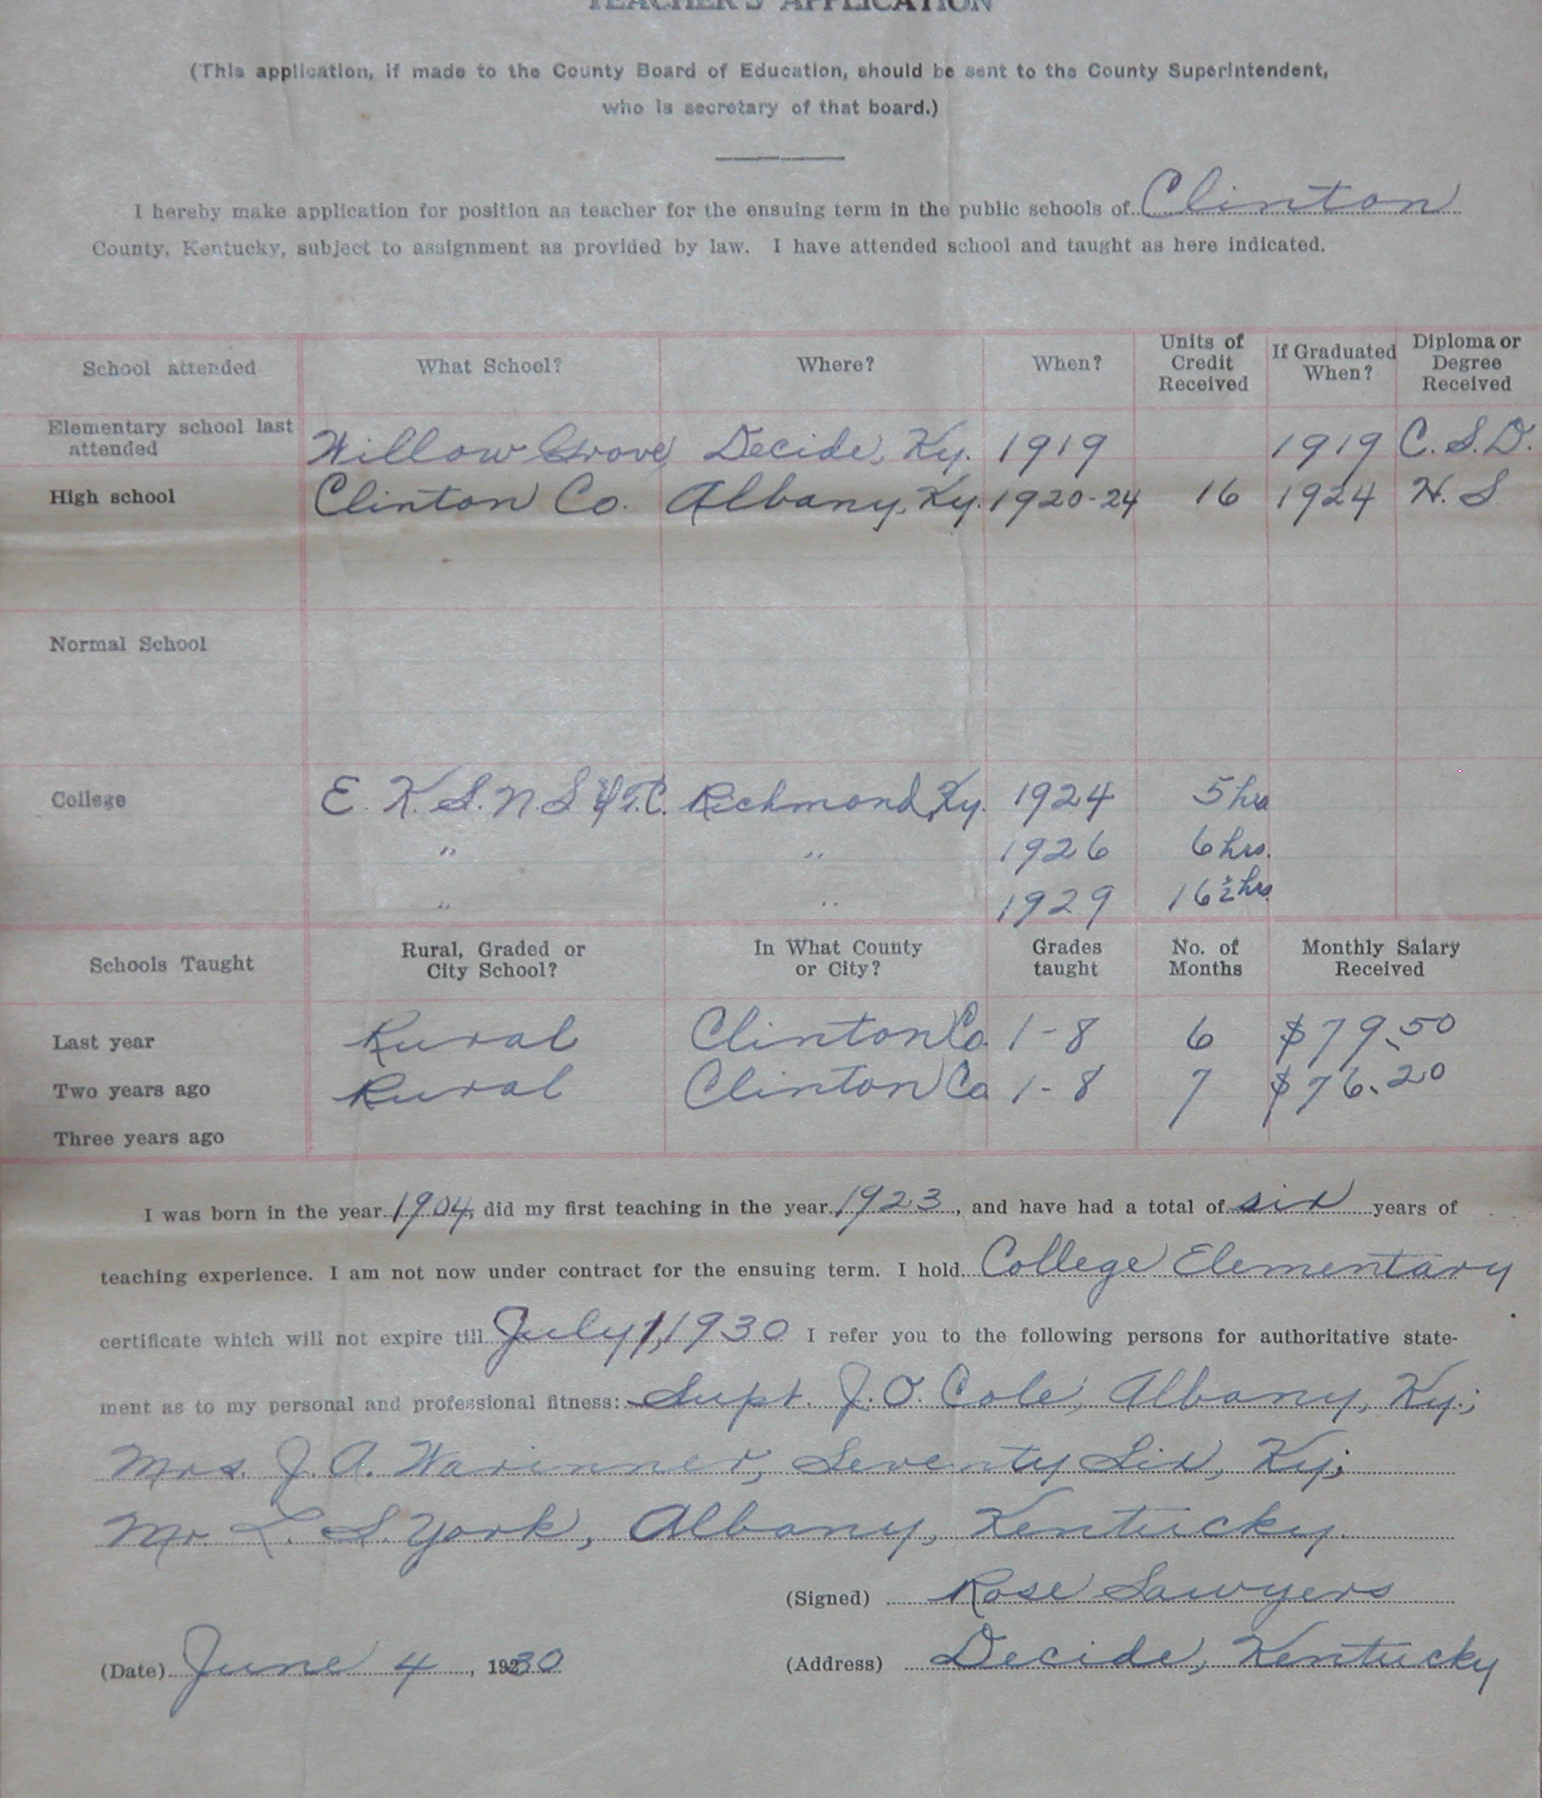 TEACHER'S APPLICATION
(This application, if made to the County Board of Education, should be sent to the County Superintendent,
who is secretary of that board.)
I hereby make application for position as teacher for the ensuing term in the public schools of Clinton
County, Kentucky, subject to assignment as provided by law. I have attended school and taught as here indicated.
School attended What School? Where? When? Units of Credit Received If Graduated When? Diploma or Degree Received
Elementary school last attended Willow Grove Decide, Ky. 1919 1919 C. S. D.
High school Clinton Co. Albany, Ky. 1920-24 16 1924 H. S
Normal School
College E. K. S. N. S & T. C. Richmond, Ky. 1924 5 hrs
" " 1926 6 hrs.
" " 1929 16 1/2 hrs
Schools Taught Rural, Graded or City School? In What County or City? Grades taught No. of Months Monthly Salary Received
Last year Rural Clinton Co. 1-8 6 $79.50
Two years ago Rural Clinton Co 1-8 7 $76.20
Three years ago
I was born in the year 1904, did my first teaching in the year 1923, and have had a total of six years of
teaching experience. I am not now under contract for the ensuing term. I hold College Elementary
certificate which will not expire till July 1, 1930 I refer you to the following persons for authoritative state-
ment as to my personal and professional fitness: Supt. J. O. Cole, Albany, Ky.;
Mrs. J. A. Warinner, Seventy Six, Ky;
Mr. L. S. York, Albany, Kentucky.
(Signed) Rose Sawyers
(Date) June 4, 1930 (Address) Decide, Kentucky